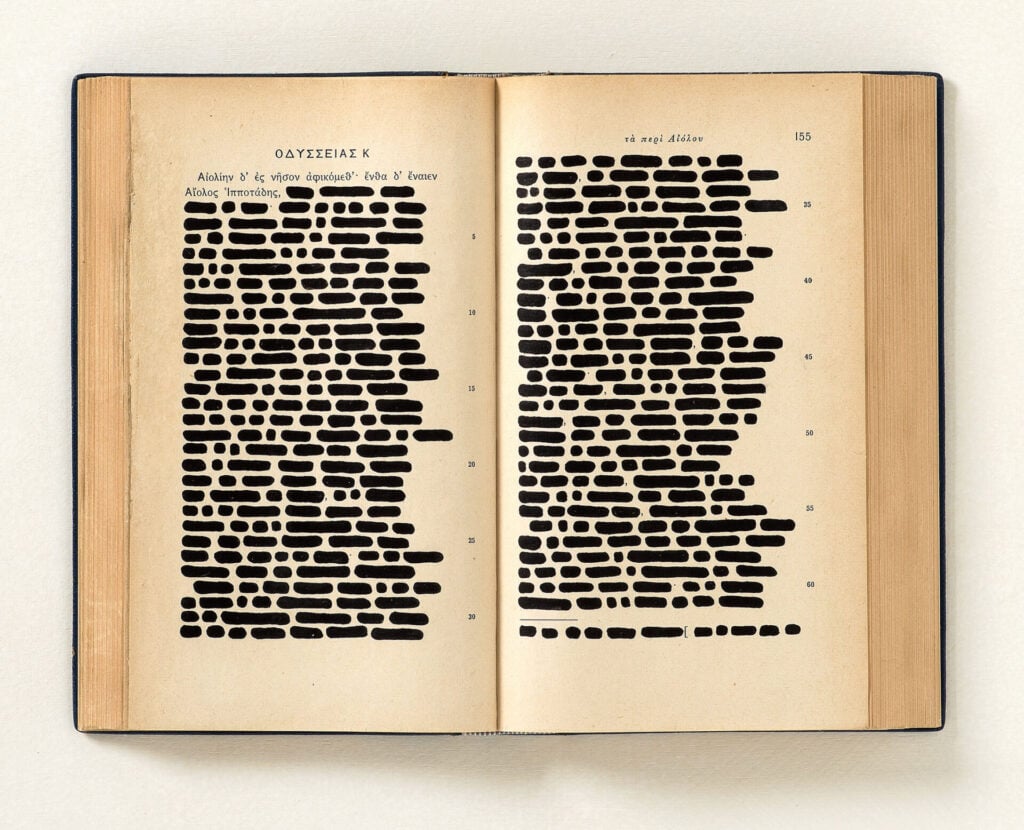 ΟΔΥΣΣΕΙΑΣ Κ
Αἰολίην δ' ἐς νῆσον ἀφικόμεθ'· ἔνθα δ' ἔναιεν
Αἴολος Ἱπποτάδης,
5
10
15
20
25
30
τὰ περὶ Αἰόλου
155
35
40
45
50
55
60
[